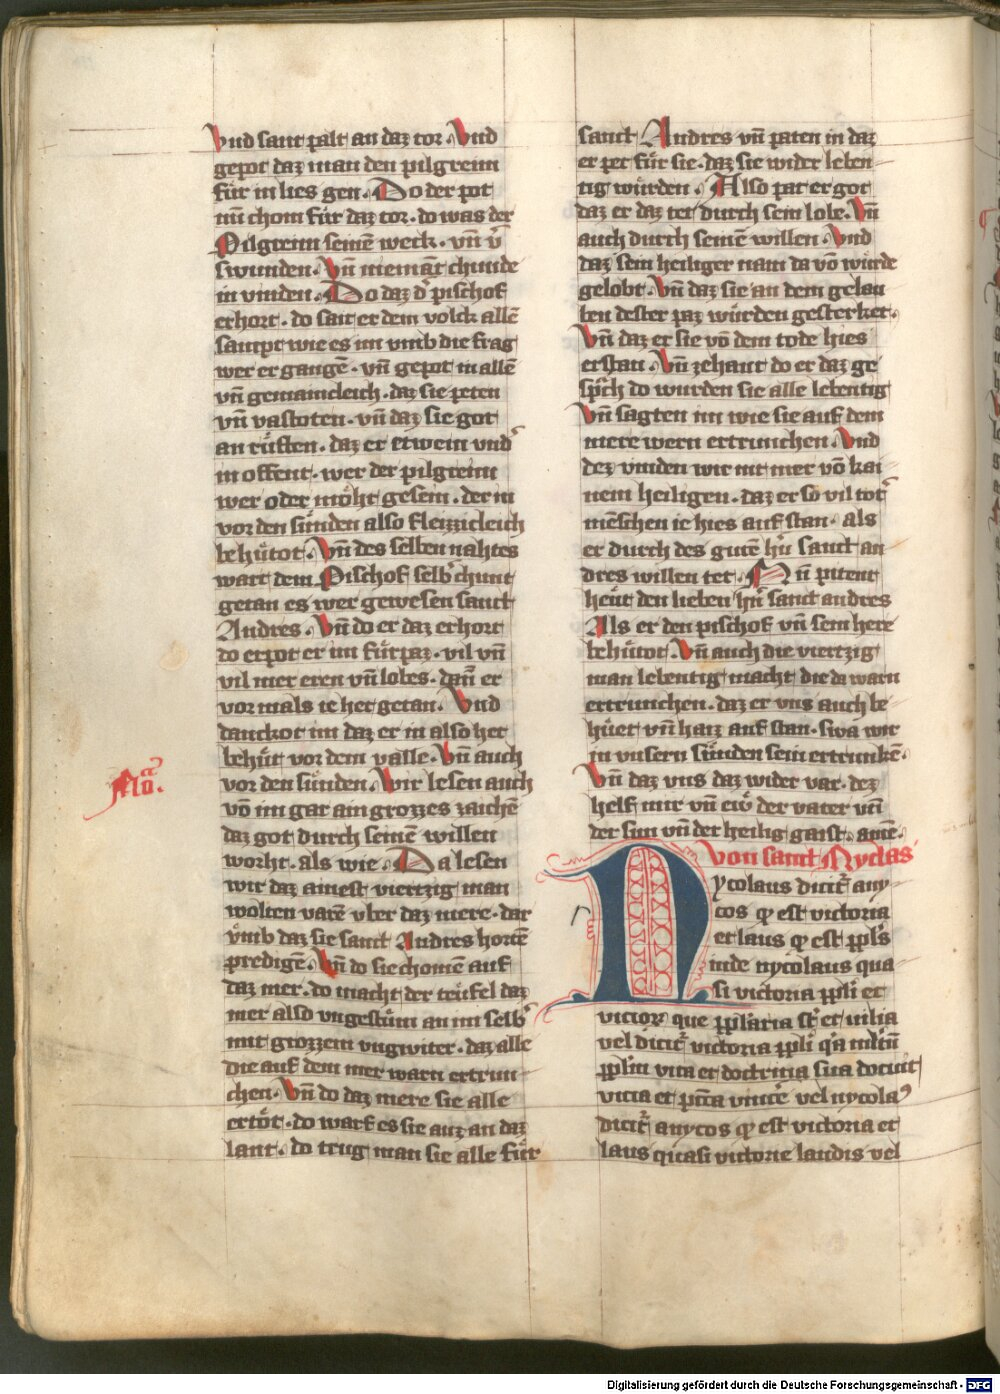 vnd sant palt an daz tor. Vnd
gepot daz man den pilgreim
fuͤr in lies gen. Do der pot
nu chom fuͤr daz tor. do was der
Pilgreim seinē weck. vn̄ v̓
swunden. Vn̄ niemāt chunde
in vinden. Do daz d̓ pischof
erhort. do sait er dem volck allē
sampt wie es im vmb die frag
wer ergangē. vn̄ gepot in allē
vn̄ gemaincleich. daz sie peten
vn̄ vastoten. vn̄ daz sie got
an ruͤften. daz er etwein vnd̓
in offent. wer der pilgreim
wer oder moͤht gesein. der in
vor den suͤnden also fleizzicleich
behuͤtot. Vn̄ des selben nahtes
wart dem Pischof selb̓ chunt
getan es wer gewesen sanct
Andres. Vn̄ do er daz erhort
do erpot er im fuͤrpaz. vil vn̄
vil mer eren vn̄ lobes. dan̄ er
vormals ie het getan. Vnd
danckot im daz er in also het
behuͤt vor dem valle. Vn̄ auch
vor den suͤnden. Wir lesen auch
vō im gar ain grozzes zaichē
daz got durch seinē willen
worht. als wie. Da lesen
wir daz ainest viertzig man
wolten varē vber daz mere. dar
vmb daz sie sanct Andres hortē
predigē. Vn̄ do sie chomē auf
daz mer. do macht der teuͤfel daz
mer also vngestuͤm an im selb̓
mit grozzem vngwiter. daz alle
die auf dem mer warn ertrun-
chen. Vn̄ do daz mere sie alle
ertoͤt. do warf es sie auz an daz
lant. do trug man sie alle fuͤr
No͞a.
sanct Andres vn̄ paten in daz
er pet fuͤr sie. daz sie wider leben-
tig wuͤrden. Also pat er got
daz er daz tet durch sein lobe. Vn̄
auch durch seinē willen. Vnd
daz sein heiliger nam da vō wuͤrde
gelobt. Vn̄ daz sie an dem gelau
ben dester paz wuͤrden gesterket.
Vn̄ daz er sie vō dem tode hies
erstan. Vn̄ zehant do er daz ge
sp̄ch do wurden sie alle lebentig
Vn̄ sagten im wie sie auf dem
mere wern ertrunchen. Vnd
dez vinden wir nit mer vō kai-
nem heiligen. daz er so vil tot̓
mēschen ie hies auf stan. als
er durch des gutē hn̄ sanct an
dres willen tet. Nn̄ pitent
heuͤt den lieben hn̄ sanct andres
Als er den pischof vn̄ sein here
behuͤtot. Vn̄ auch die viertzig
man lebentig macht die da warn
ertrunchen. daz er vns auch be-
huͤet vn̄ haiz auf stan. swa wir
in vnsern suͤnden sein ertrunkē.
Vn̄ daz vns daz wider var. dez
helf mir vn̄ ewͤ der vater vn̄
der sun vn̄ der heilig gaist. amē.
Von sanct Nyclas
Nycolaus dicit᷑ a ny-
cos qͥ est victoria
et laus qͥ est ppl̓s
inde nycolaus qua-
si victoria ppli et
victor᷑ que pplaria st̄ et vilia
vel dicit᷑ victoria ppli qͥa ml̓tū
pplm vita et doctrina sua docuit
vicia et pctā vincē vel nycolaꝰ
dicit᷑ a nycos qͥ est victoria et
laus quasi victorie laudis vel
Digitalisierung gefördert durch die Deutsche Forschungsgemeinschaft - DFG